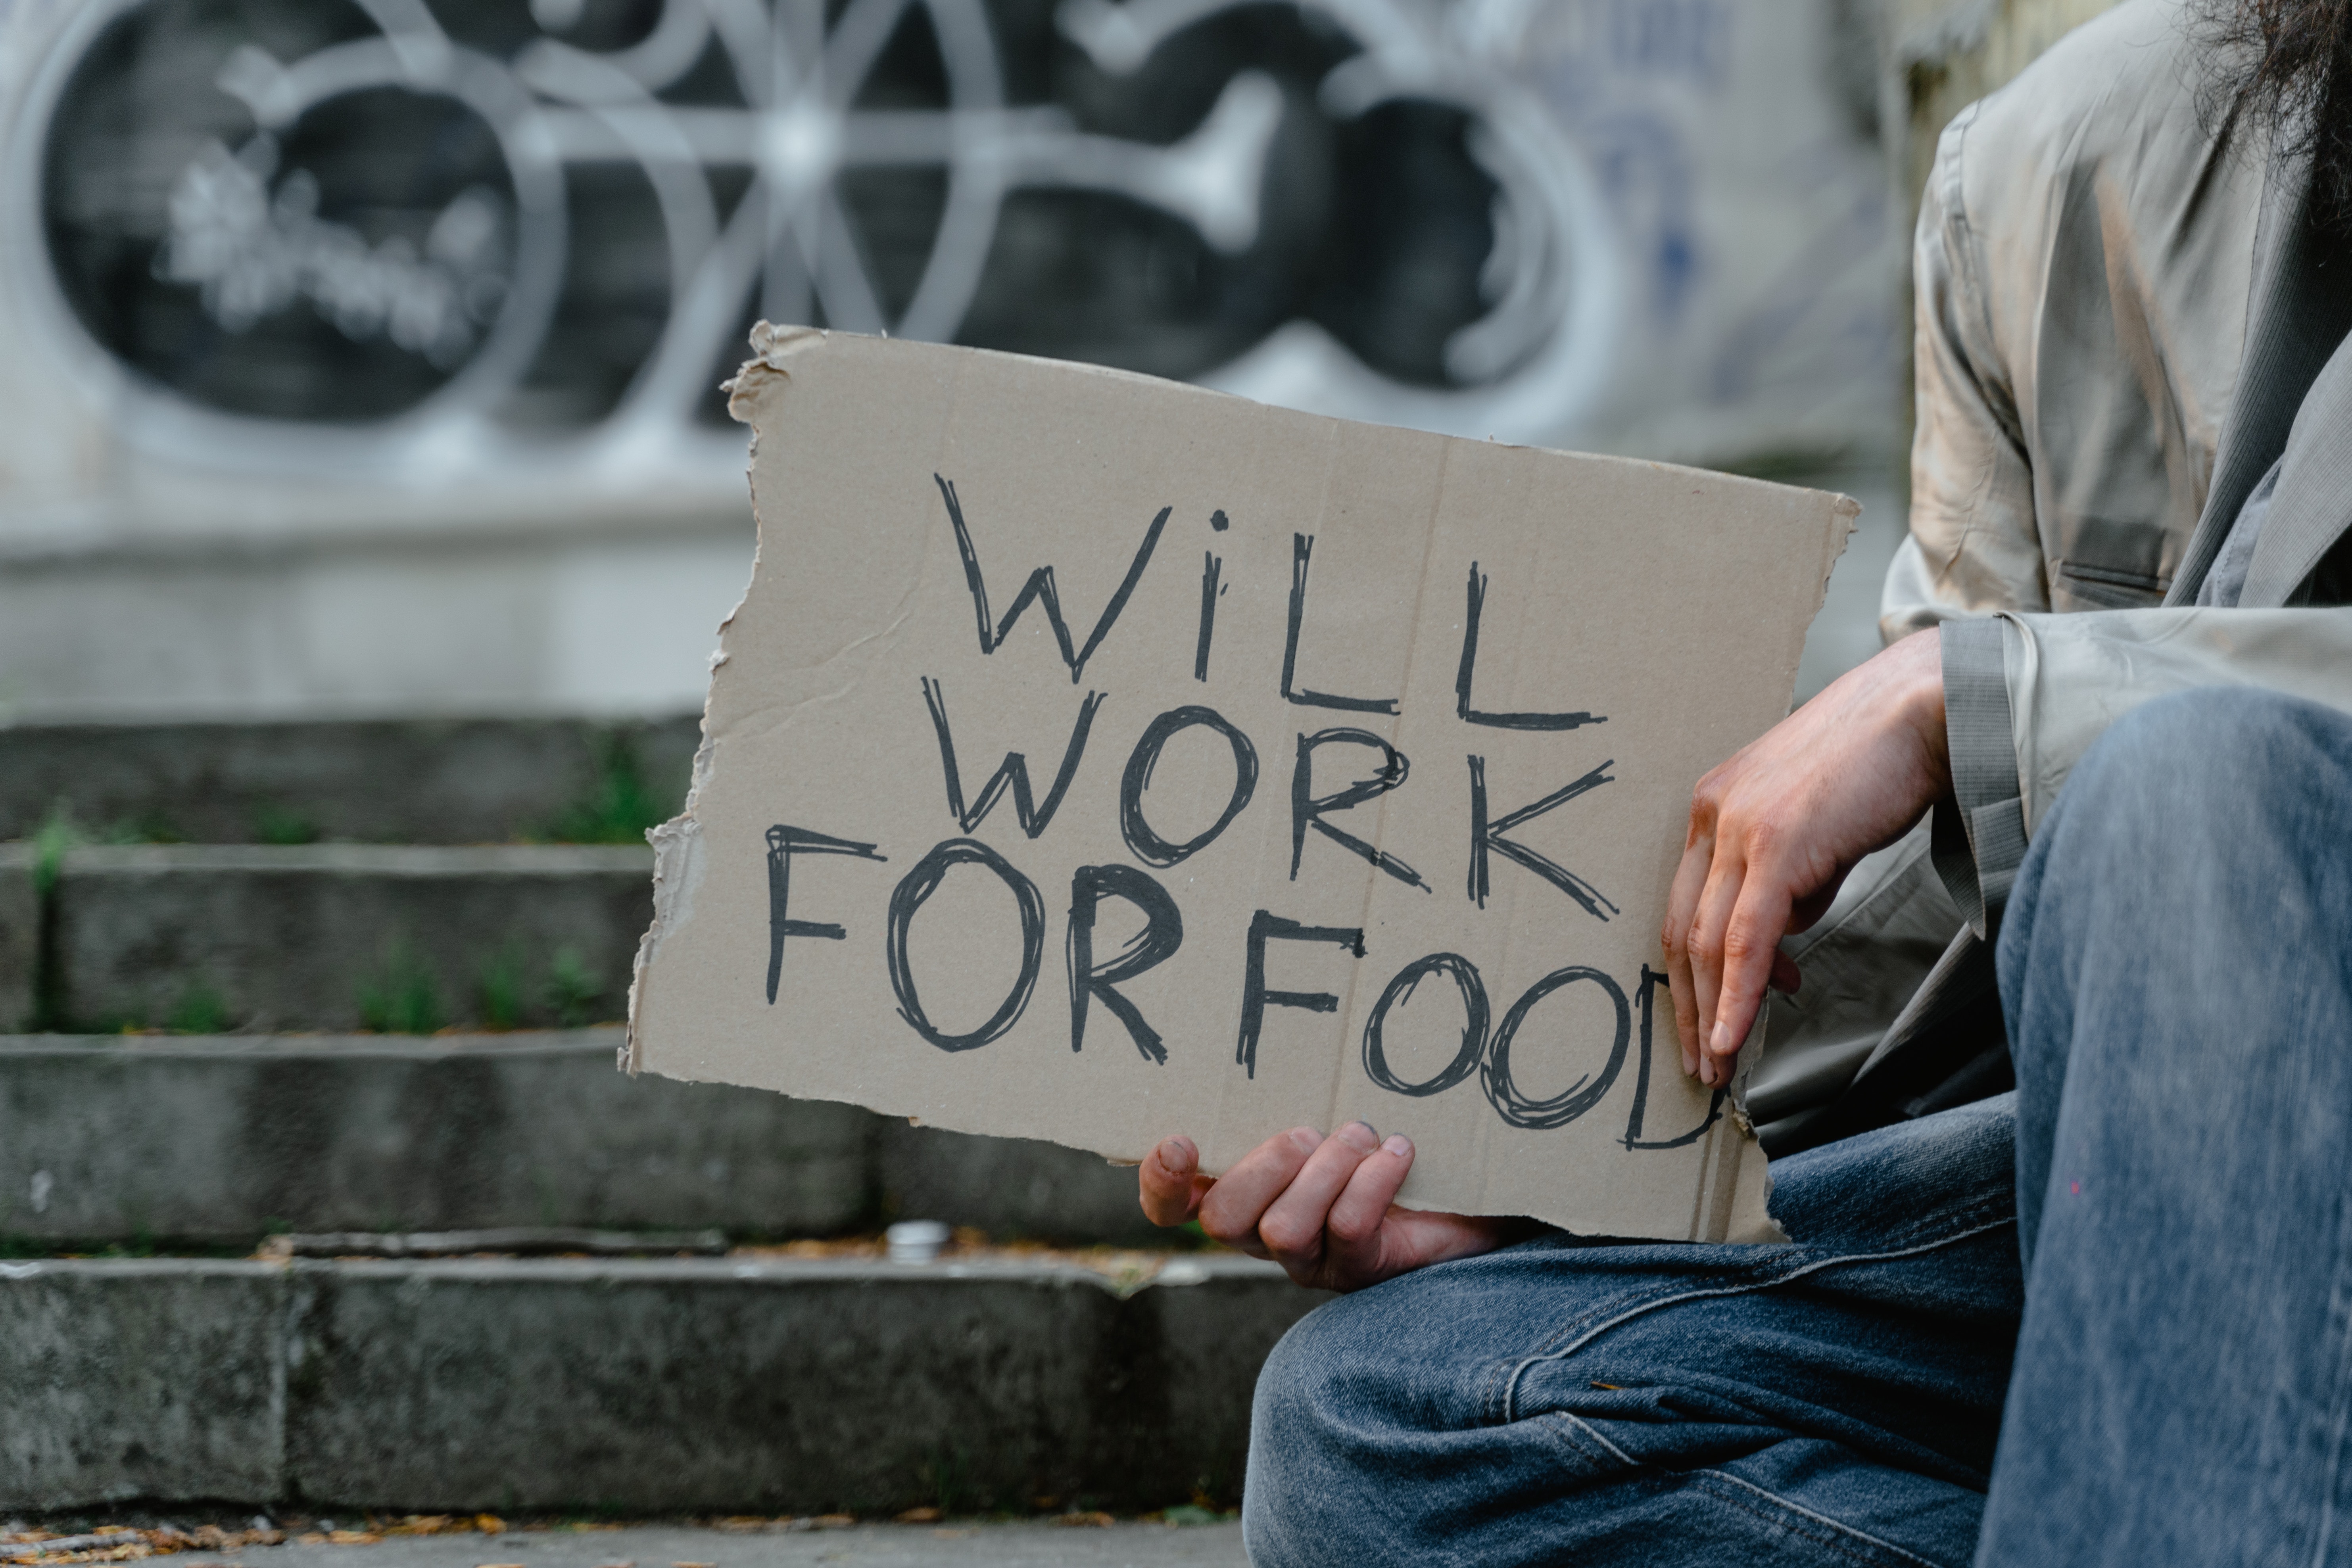 WiLL
WORK
FOR FOOD